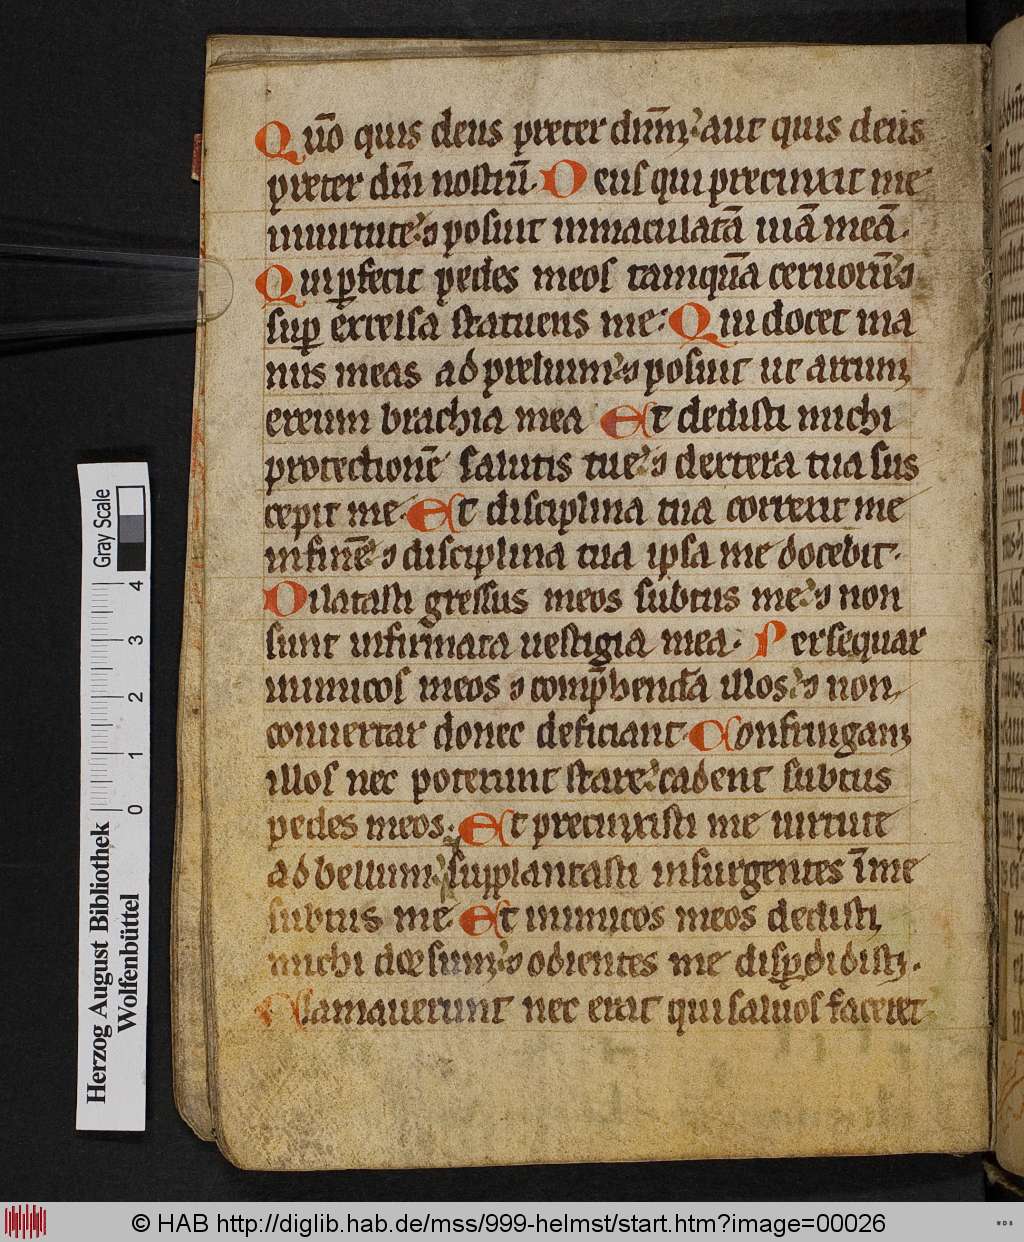 Qūo quis deus preter dn̄m; aut quis deus
preter dn̄m nostrū. Deus qui precinxit me
uirtute; ⁊ posuit inmaculatā uiā meā.
Qui ꝑfecit pedes meos tamquā ceruorū; ⁊
suꝑ excelsa statuens me: Qui docet ma
nus meas ad prelium; ⁊ posuit ut arcum
ereum brachia mea Et dedisti michi
protectionē salutis tue; ⁊ dextera tua sus
cepit me. Et disciplina tua correxit me
in finē; ⁊ disciplina tua ipsa me docebit.
Dilatasti gressus meos subtus me; ⁊ non
sunt infirmata uestigia mea. Persequar
inimicos meos ⁊ comp̄hendā illos; ⁊ non
conuertar donec deficiant. Confringam
illos nec poterunt stare; cadent subtus
pedes meos. Et precinxisti me uirtute
ad bellum; supplantasti insurgentes ī me
subtus me Et inimicos meos dedisti
michi dorsum; ⁊ odientes me disꝑdidisti.
Clamauerunt nec erat qui saluos faceret
Gray Scale
0 1 2 3 4
Herzog August Bibliothek
Wolfenbüttel
© HAB http://diglib.hab.de/mss/999-helmst/start.htm?image=00026